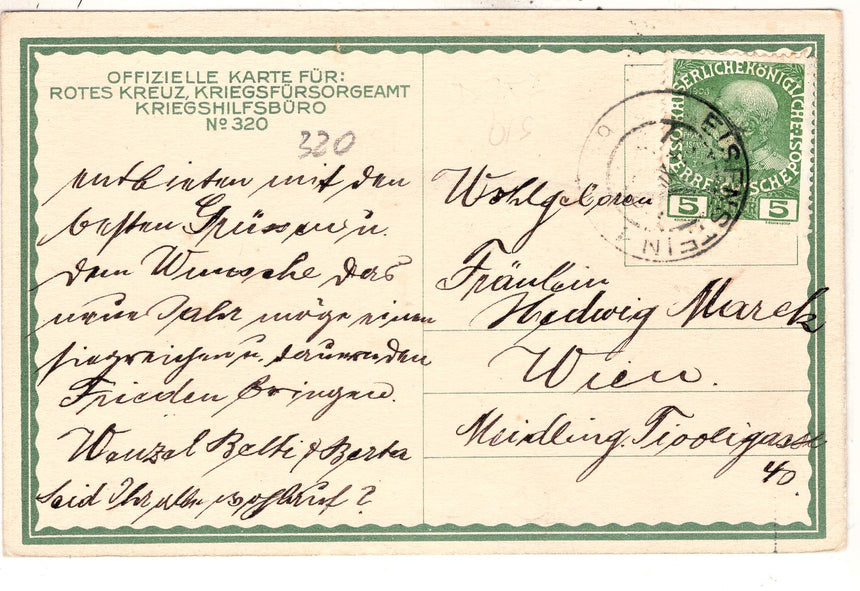 OFFIZIELLE KARTE FÜR:
ROTES KREUZ, KRIEGSFÜRSORGEAMT
KRIEGSHILFSBÜRO
No 320
320
entbieten mit den
besten Grüssen u.
dem Wunsche das
neue Jahr möge einen
siegreichen u. dauernden
Frieden bringen.
Wenzel Betti & Berta
Seid Ihr alle wohlauf?
EISENSTEIN
5 5
Wohlgeboren
Fräulein
Hedwig Marek
Wien.
Meidling. Tivoligasse
40.